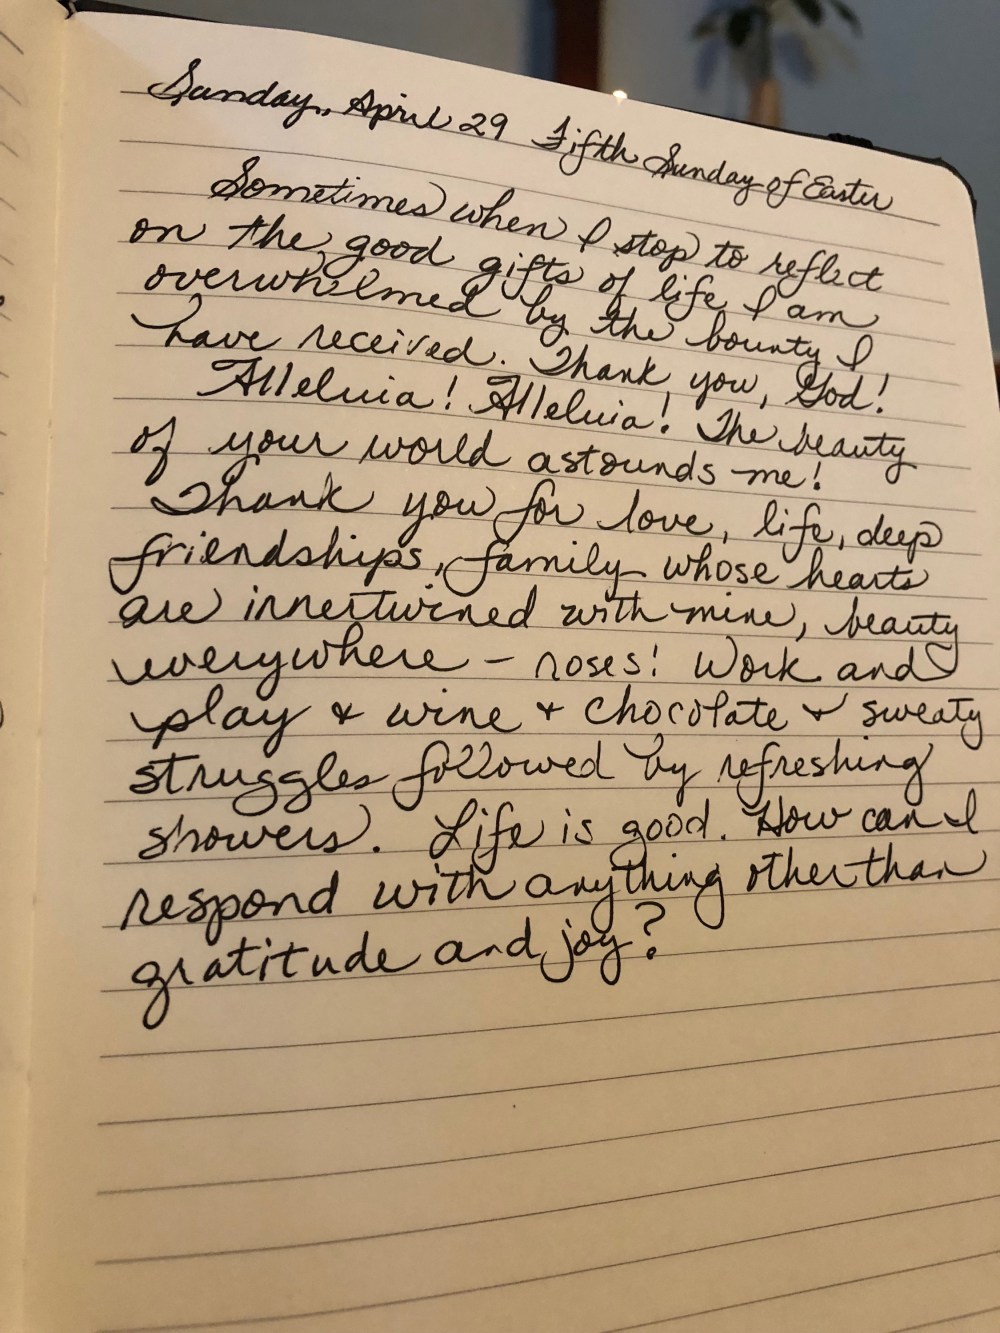 Sunday, April 29 Fifth Sunday of Easter
Sometimes when I stop to reflect
on the good gifts of life I am
overwhelmed by the bounty I
have received. Thank you, God!
Alleluia! Alleluia! The beauty
of your world astounds me!
Thank you for love, life, deep
friendships, family whose hearts
are innertwined with mine, beauty
everywhere - roses! Work and
play & wine & chocolate & sweaty
struggles followed by refreshing
showers. Life is good. How can I
respond with anything other than
gratitude and joy?